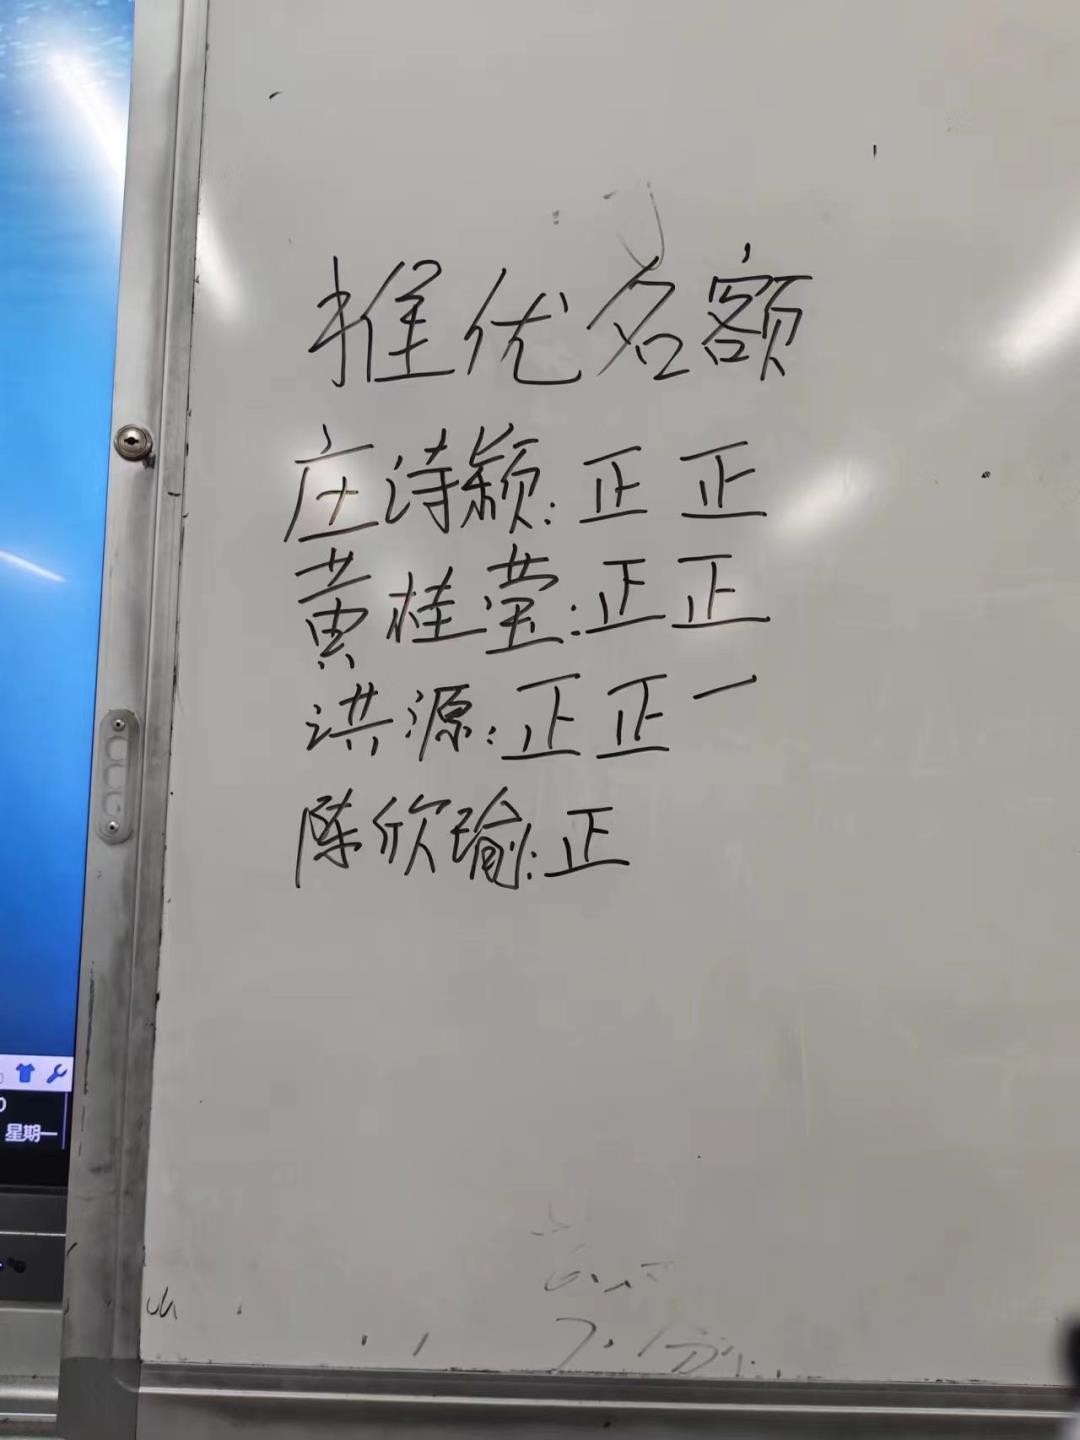 推优名额
庄诗颖:正正
黄桂莹:正正
洪源:正正一
陈欣瑜:正
星期一